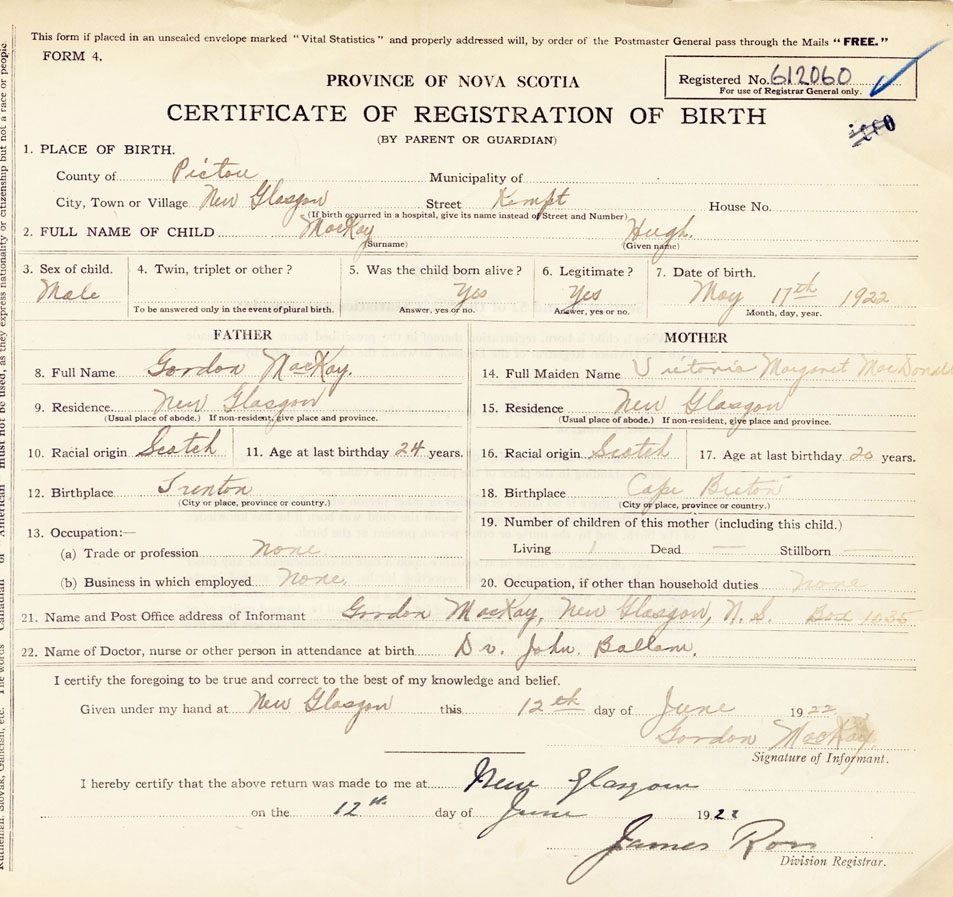 This form if placed in an unsealed envelope marked "Vital Statistics" and properly addressed will, by order of the Postmaster General pass through the Mails "FREE."
FORM 4.
PROVINCE OF NOVA SCOTIA
Registered No. 612060
For use of Registrar General only.
CERTIFICATE OF REGISTRATION OF BIRTH
(BY PARENT OR GUARDIAN)
1. PLACE OF BIRTH.
County of Pictou Municipality of
City, Town or Village New Glasgow Street Kempt House No.
(If birth occurred in a hospital, give its name instead of Street and Number)
2. FULL NAME OF CHILD MacKay Hugh.
(Surname) (Given name)
3. Sex of child. 4. Twin, triplet or other? 5. Was the child born alive? 6. Legitimate? 7. Date of birth.
Male Yes Yes May 17th 1922
To be answered only in the event of plural birth. Answer, yes or no. Answer, yes or no. Month, day, year.
FATHER MOTHER
8. Full Name Gordon MacKay. 14. Full Maiden Name Victoria Margaret MacDonald
9. Residence New Glasgow 15. Residence New Glasgow
(Usual place of abode.) If non-resident, give place and province. (Usual place of abode.) If non-resident, give place and province.
10. Racial origin Scotch 11. Age at last birthday 24 years. 16. Racial origin Scotch 17. Age at last birthday 20 years.
12. Birthplace Trenton 18. Birthplace Cape Breton
(City or place, province or country.) (City or place, province or country.)
13. Occupation:— 19. Number of children of this mother (including this child.)
(a) Trade or profession none Living 1 Dead — Stillborn —
(b) Business in which employed none. 20. Occupation, if other than household duties none
21. Name and Post Office address of Informant Gordon MacKay, New Glasgow, N.S. Box
22. Name of Doctor, nurse or other person in attendance at birth Dr. John Ballem.
I certify the foregoing to be true and correct to the best of my knowledge and belief.
Given under my hand at New Glasgow this 12th day of June 1922
Gordon MacKay.
Signature of Informant.
I hereby certify that the above return was made to me at New Glasgow
on the 12th day of June 1922
James Ross
Division Registrar.